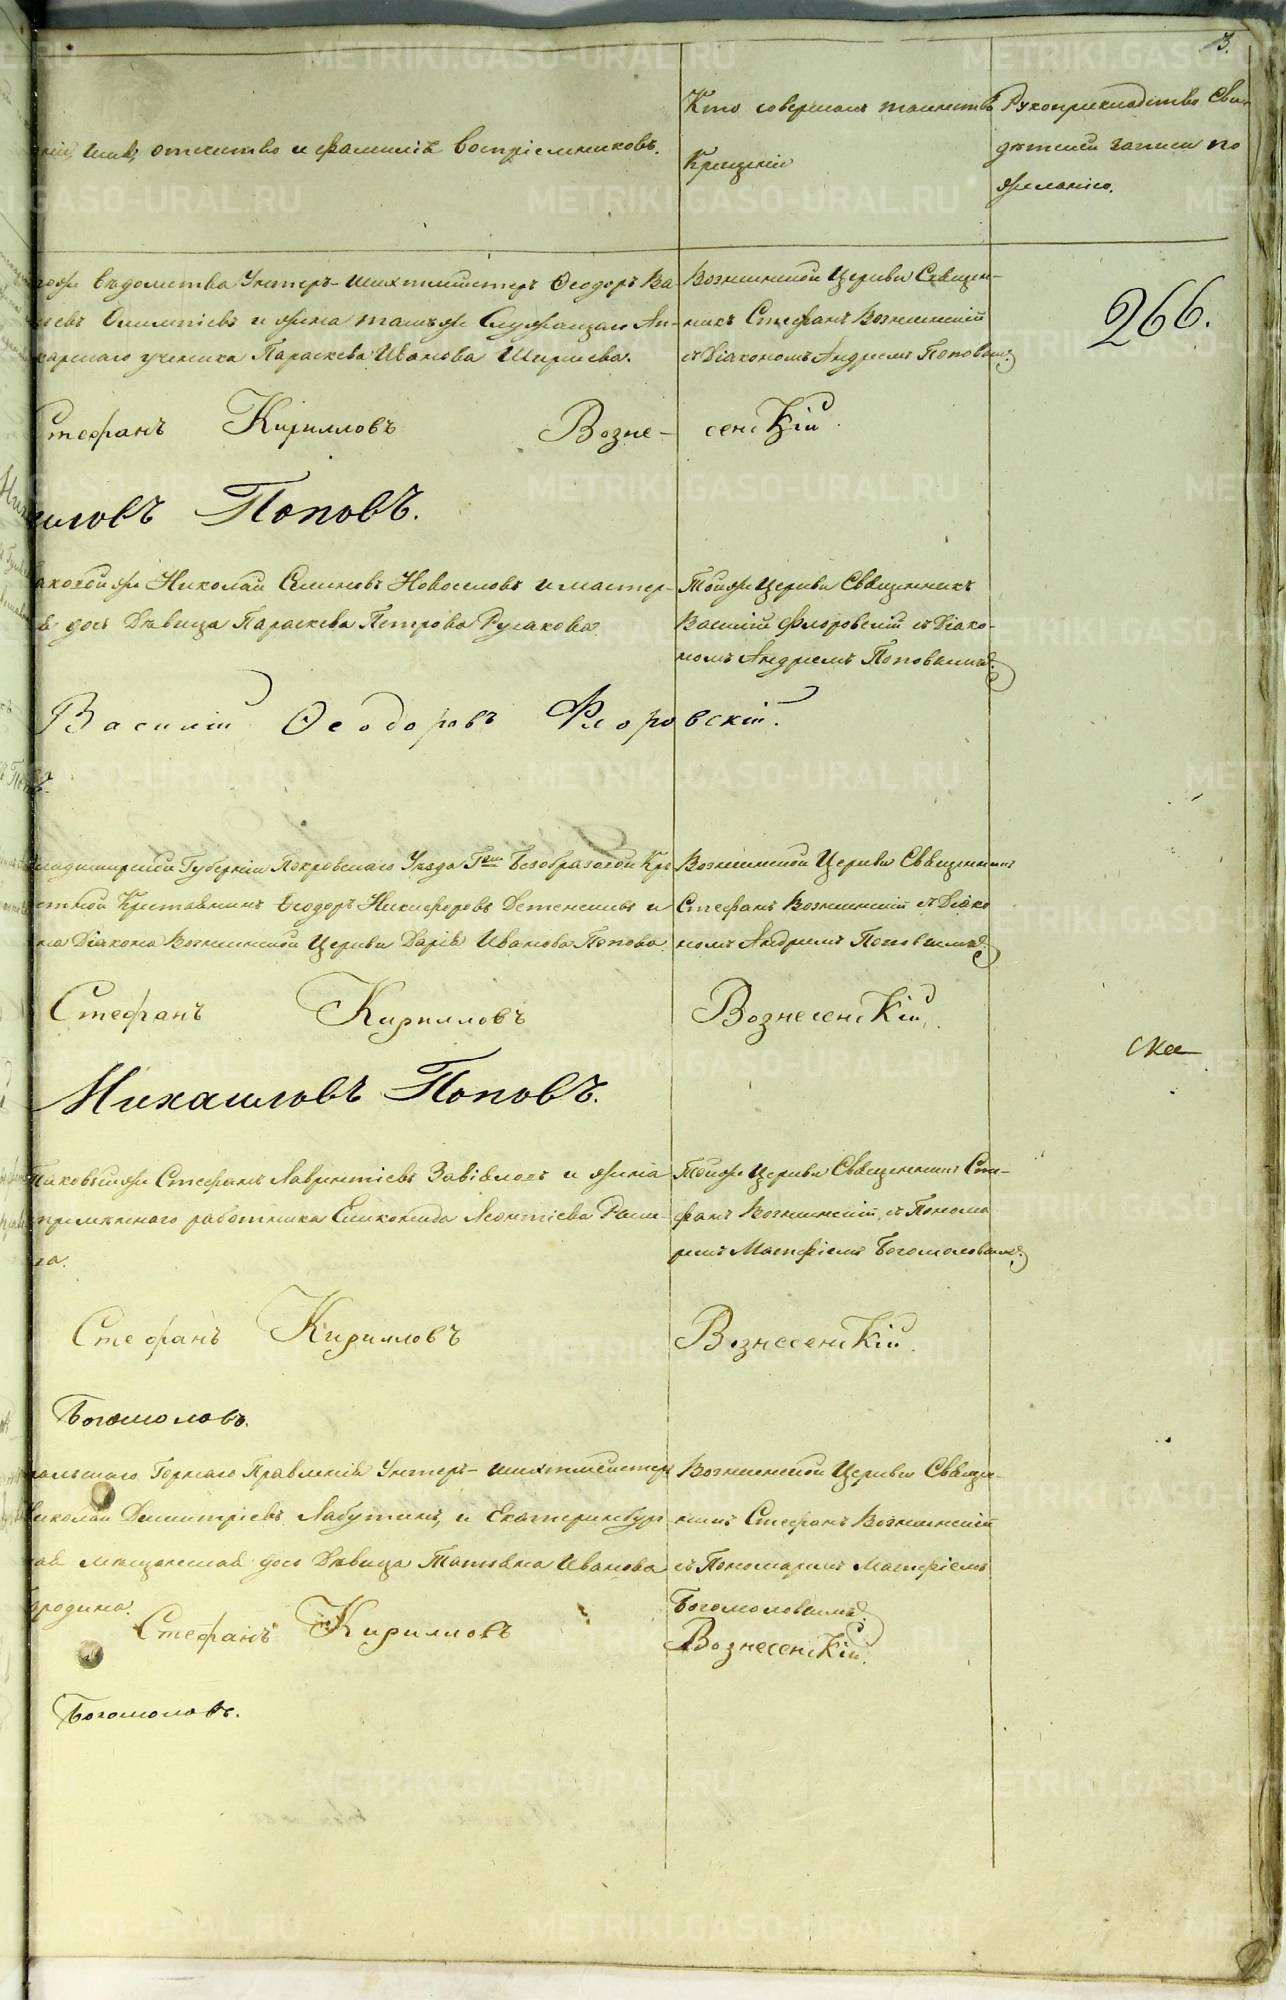 3.
имя, отечество и фамилія Воспріемниковъ.
Кто совершалъ таинство
Крещенія
Рукоприкладство Сви-
дѣтелей записи по
желанію.
Вѣдомства Унтеръ-шихтмейстеръ Ѳеодоръ Ва-
Олимпіевъ и жена тагожъ Служащаго
ученика Параскева Иванова Ширяева.
Вознесенской Церкви Священ-
никъ Стефанъ Вознесенскій
съ Діакономъ Андреемъ Поповымъ
266.
Стефанъ Кирилловъ Возне- сенскій
Поповъ.
Николай Новоселовъ и мастер-
дочь Дѣвица Параскева Петрова Русакова
Тойже Церкви Священникъ
Василій Флоровскій съ Діако-
номъ Андреемъ Поповымъ
Василій Ѳеодоровъ Флоровскій.
Владимирской Губерніи Покровскаго Уѣзда Гжи Безобразовой Кре-
Крестьянинъ Ѳеодоръ Никифоровъ и
на Діакона Вознесенской Церкви Дарія Иванова Попова
Вознесенской Церкви Священникъ
Стефанъ Вознесенскій съ Діако
номъ Андреемъ Поповымъ
Стефанъ Кирилловъ Вознесенскій
Михаиловъ Поповъ.
Таковыйже Стефанъ Лаврентіевъ и жена
работника Леонтіева
Тойже Церкви Священникъ Сте-
фанъ Вознесенскій съ Понома-
ремъ Матфіемъ Богомоловымъ
Стефанъ Кирилловъ Вознесенскій
Богомоловъ.
Горнаго Правленія Унтеръ-шихтмейстеръ
Николай Димитріевъ Лабутинъ, и Екатеринбург
мѣщанская дочь Дѣвица Татьяна Иванова
Бородина.
Вознесенской Церкви Священ-
никъ Стефанъ Вознесенскій
съ Пономаремъ Матфіемъ
Богомоловымъ
Стефанъ Кирилловъ Вознесенскій
Богомоловъ.
METRIKI.GASO-URAL.RU